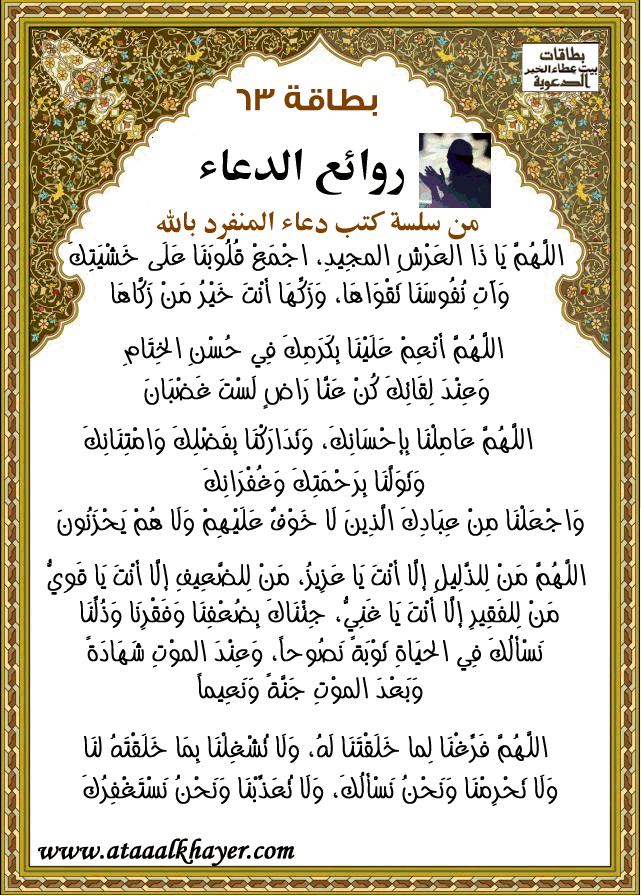 بطاقات
بيت عطاء الخير
الدعوية
بطاقة ٦٣
روائع الدعاء
من سلسة كتب دعاء المنفرد بالله
اللَّهُمَّ يَا ذَا العَرْشِ المجِيدِ، اجْمَعْ قُلُوبَنَا عَلَى خَشْيَتِكَ
وَآتِ نُفُوسَنَا تَقْوَاهَا، وَزَكِّهَا أنْتَ خَيْرُ مَنْ زَكَّاهَا
اللَّهُمَّ أنْعِمْ عَلَيْنَا بِكَرَمِكَ فِي حُسْنِ الخِتَامِ
وَعِنْدَ لِقَائِكَ كُنْ عَنَّا رَاضٍ لَسْتَ غَضْبَانَ
اللَّهُمَّ عَامِلْنَا بِإحْسَانِكَ، وَتَدَارَكْنَا بِفَضْلِكَ وَامْتِنَانِكَ
وَتَوَلَّنَا بِرَحْمَتِكَ وَغُفْرَانِكَ
وَاجْعَلْنَا مِنْ عِبَادِكَ الَّذِينَ لَا خَوْفٌ عَلَيْهِمْ وَلَا هُمْ يَحْزَنُونَ
اللَّهُمَّ مَنْ لِلذَّلِيلِ إلَّا أنْتَ يَا عَزِيزُ، مَنْ لِلضَّعِيفِ إلَّا أنْتَ يَا قَوِيُّ
مَنْ لِلفَقِيرِ إلَّا أنْتَ يَا غَنِيُّ، جِئْنَاكَ بِضُعْفِنَا وَفَقْرِنَا وَذُلِّنَا
نَسْألُكَ فِي الحَيَاةِ تَوْبَةً نَصُوحاً، وَعِنْدَ الموْتِ شَهَادَةً
وَبَعْدَ الموْتِ جَنَّةً وَنَعِيماً
اللَّهُمَّ فَرِّغْنَا لِما خَلَقْتَنَا لَهُ، وَلَا تُشْغِلْنَا بِمَا خَلَقْتَهُ لَنَا
وَلَا تَحْرِمْنَا وَنَحْنُ نَسْألُكَ، وَلَا تُعَذِّبْنَا وَنَحْنُ نَسْتَغْفِرُكَ
www.ataaalkhayer.com